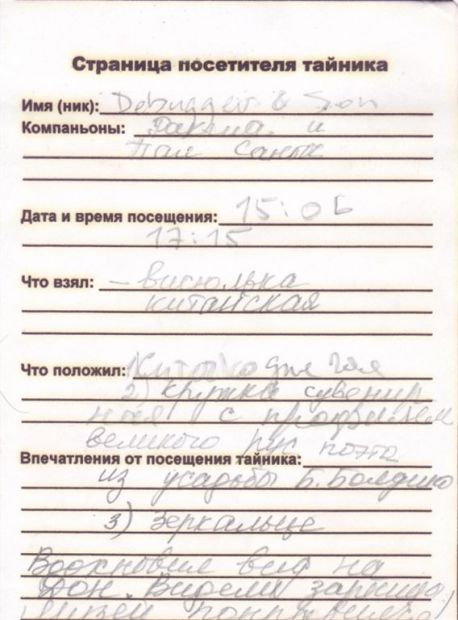 Страница посетителя тайника
Имя (ник): Debugger & Son
Компаньоны: и
Пал Саныч
Дата и время посещения: 15:06
17:15
Что взял: – висюлька
китайская
Что положил: 1)
2) кружка сувенир
ная с профилем
великого рус поэта
Впечатления от посещения тайника:
из усадьбы Б. Болдино
3) Зеркальце
Вдохновил вид на
Дон. Видели